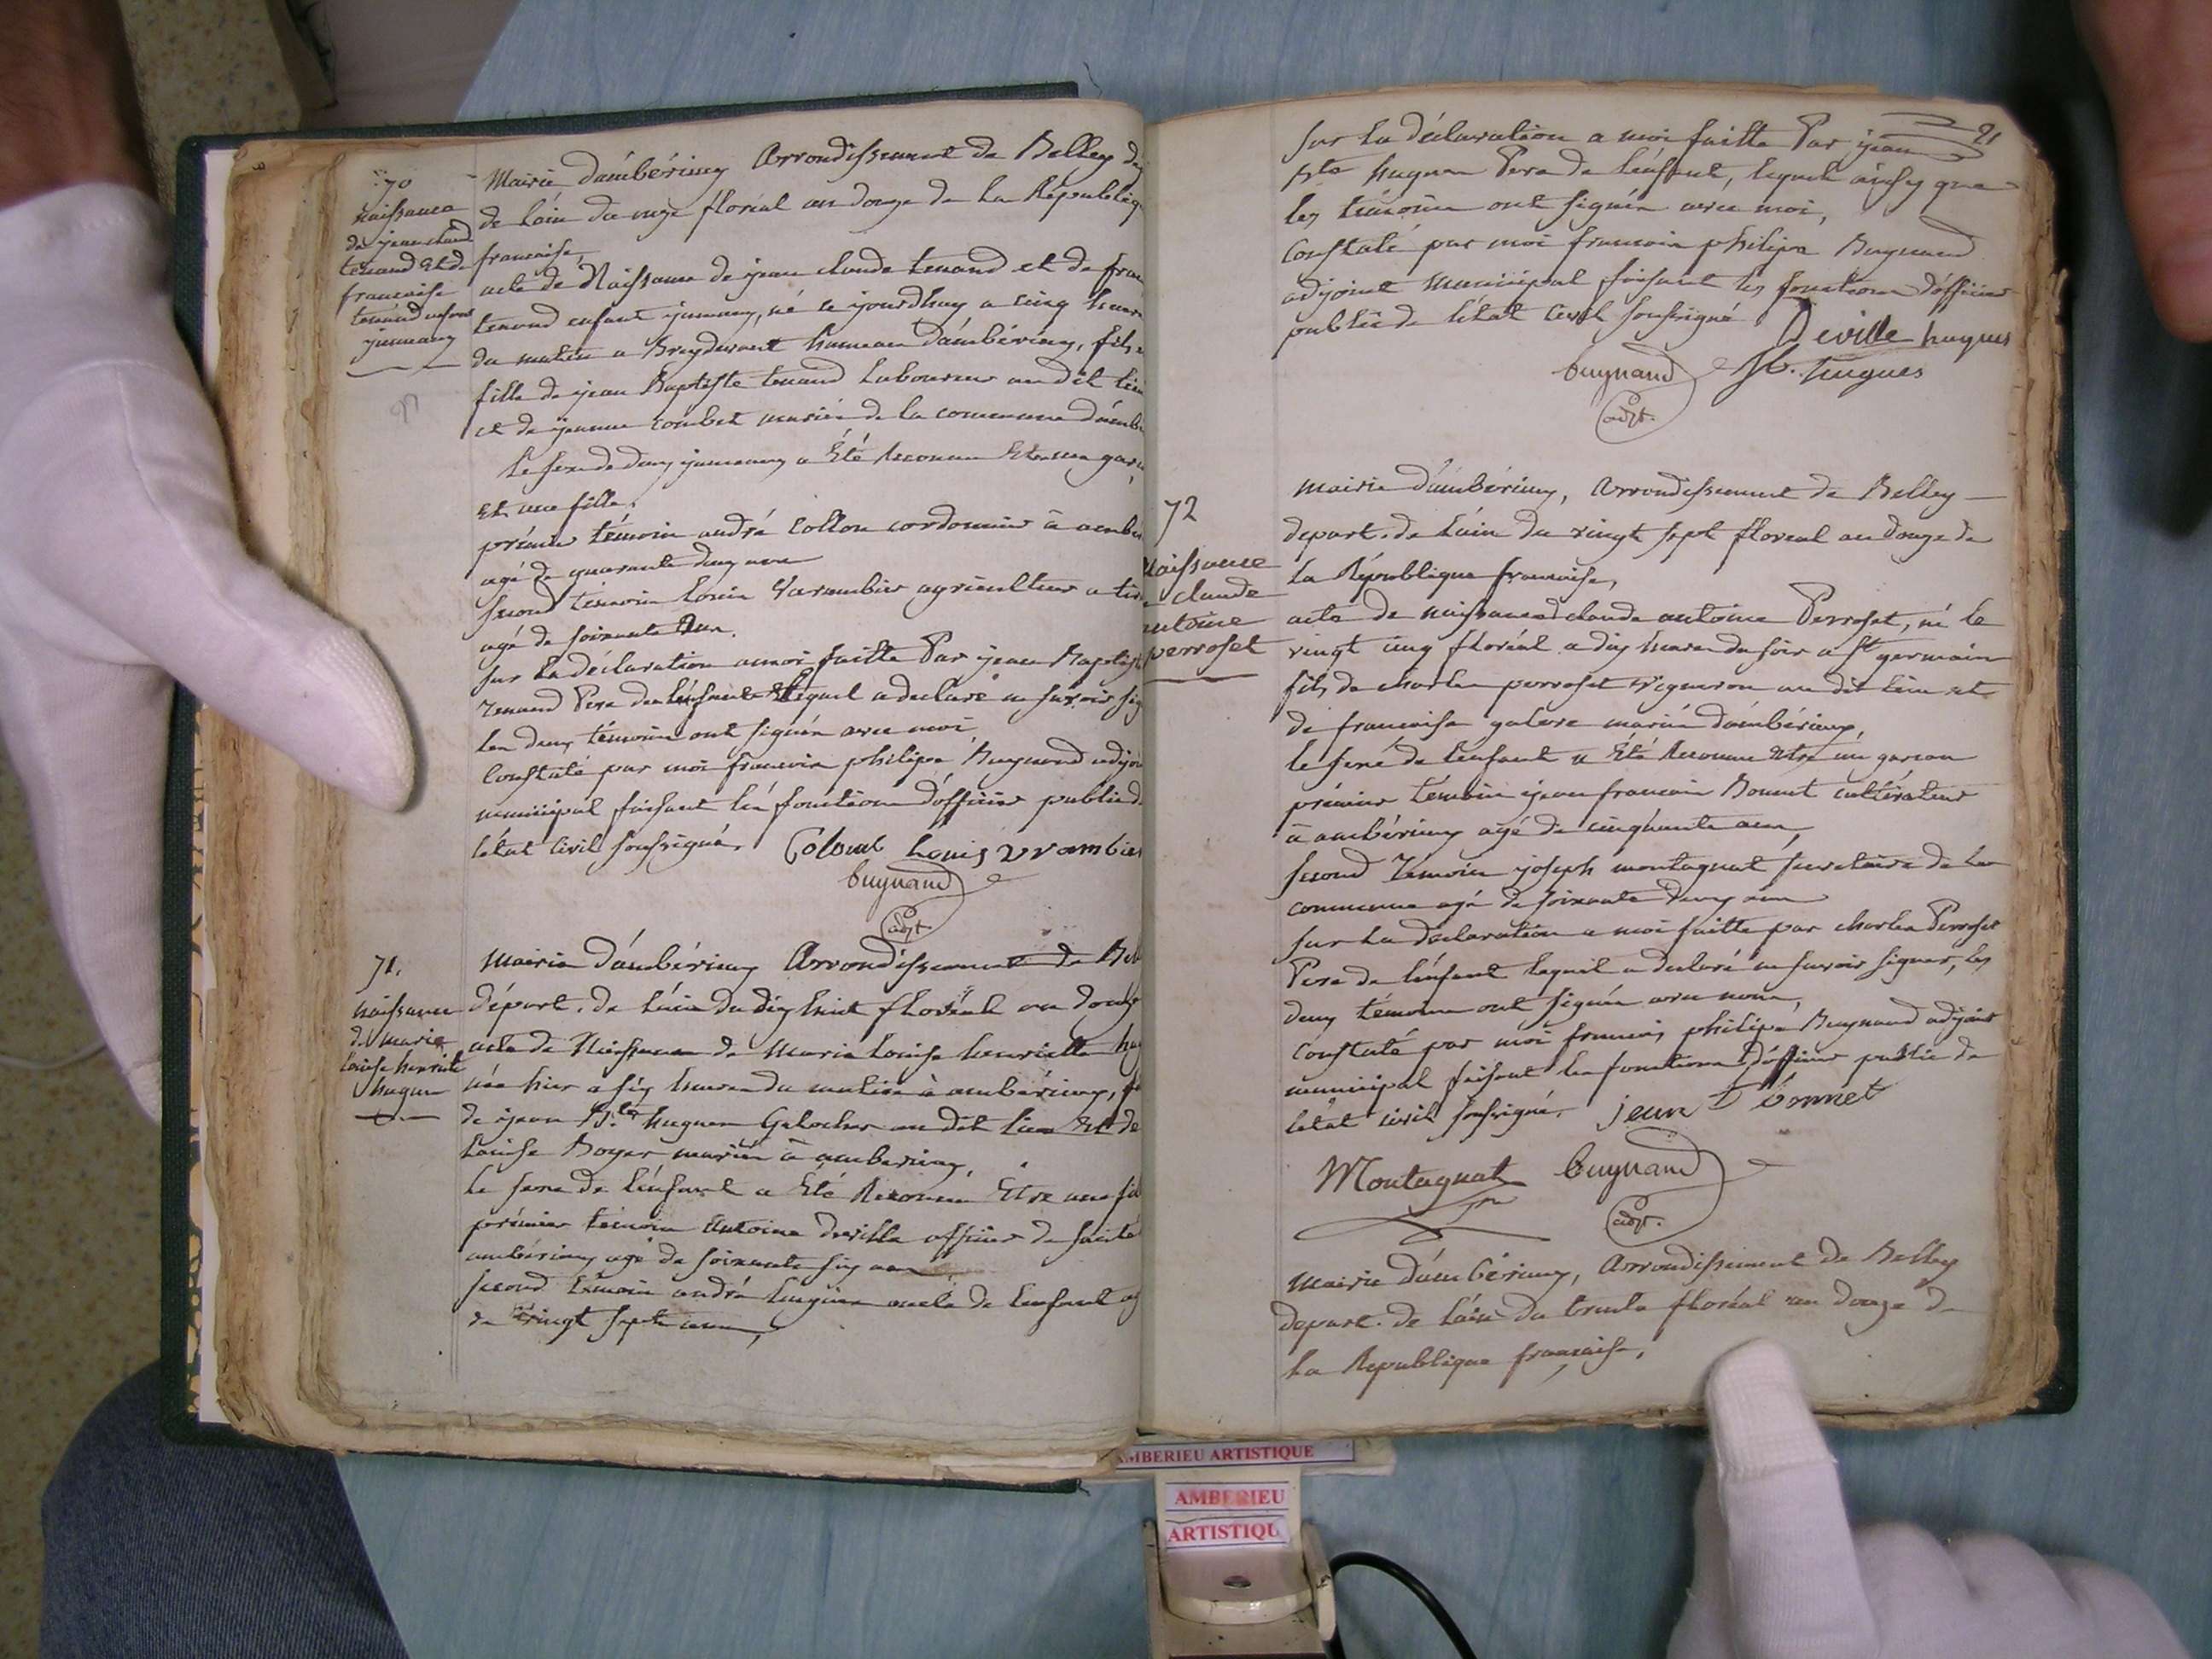 70
naissance
de jean claude
tenand Et de
francoise
tenand enfans
jumeaux
Mairie d'ambérieux Arrondissement de Belley
de l'ain du onze floréal an douze de la République
francaise,
acte de Naissance de jean claude tenand et de
tenand enfant jumeaux, né ce jourdhuy a cinq heures
du matin a Breydevent hameau d'ambérieux, fils
fille de jean Baptiste tenand laboureur au dit lieu
et de jeanne combet mariés de la commune
le sexe de deux jumeaux a Été Reconnu Etre un
Et une fille,
prémier témoin andré Collon cordonnier à
agé de quarante deux ans
second témoin louis Varambier agriculteur a
agé de soixante ans.
sur la déclaration a moi faitte Par jean Baptiste
tenand Pere de l'enfant lequel a declaré ne savoir
les deux témoins ont signés avec moi
Constaté par moi francois philipe Bugnand
municipal faisant les fonctions d'officier public
létat civil soussigné. Colomb Louis vrambier
bugnand
adjt.
71.
naissance
de marie
louise henriette
hugues
Mairie d'ambérieux Arrondissement de
départ. de l'ain du dix huit floréal an douze
acte de Naissance de Marie louise henriette
née hier a six heures du matin à ambérieux,
de jean Bte hugues Galocher au dit lieu Et de
louise Boyer mariés à amberieux,
le sexe de l'enfant a Été Reconnu Etre une
prémier témoin antoine deville officier de santé
ambérieux agé de soixante six ans
second témoin andré hugues oncle de l'enfant
de vingt sept ans,
21
sur la déclaration a moi faitte Par jean
Bte hugues Pere de l'enfant, lequel ainsy que
les témoins ont signés avec moi,
Constaté par moi francois philipe Bugnand
adjoint municipal faisant les fonctions d'officier
public de létat Civil soussigné Deville hugues
bugnand JB. hugues
adjt.
72
naissance
claude
antoine
perroset
mairie d'ambérieux, Arrondissement de Belley
depart. de l'ain du vingt sept floréal an douze de
la République francaise,
acte de naissance de claude antoine Perroset, né le
vingt cinq floréal a dix heures du soir a St germain
fils de charles perroset vigneron au dit lieu et
de francoise galere mariés d'ambérieux,
le sexe de l'enfant a Eté Reconnu Etre un garcon
prémier témoin jean francois Bonnet cultivateur
à ambérieux agé de cinquante ans,
second témoin joseph montagnat secretaire de la
commune agé de soixante deux ans
sur la déclaration a moi faitte par charles Perroset
Pere de l'enfant lequel a declaré ne savoir signer, les
deux témoins ont signés avec nous,
Constaté par moi francois philipe Bugnand adjoint
municipal faisant les fonctions d'officier public de
létat civil soussigné. jean f bonnet
Montagnat bugnand
adjt.
mairie d'ambérieux, Arrondissement de Belley
depart. de l'ain du trente floréal an douze de
la République francaise,
MBERIEU ARTISTIQUE
AMBERIEU
ARTISTIQU